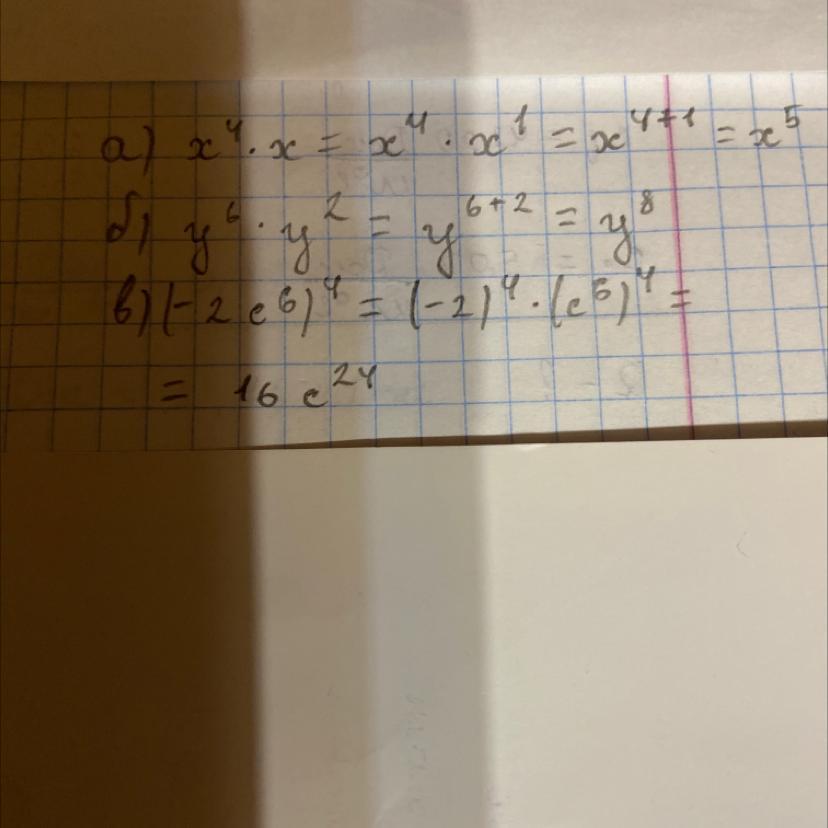 а) x⁴ · x = x⁴ · x¹ = x⁴⁺¹ = x⁵
б) y⁶ · y² = y⁶⁺² = y⁸
в) (-2 c⁶)⁴ = (-2)⁴ · (c⁶)⁴ =
= 16 c²⁴